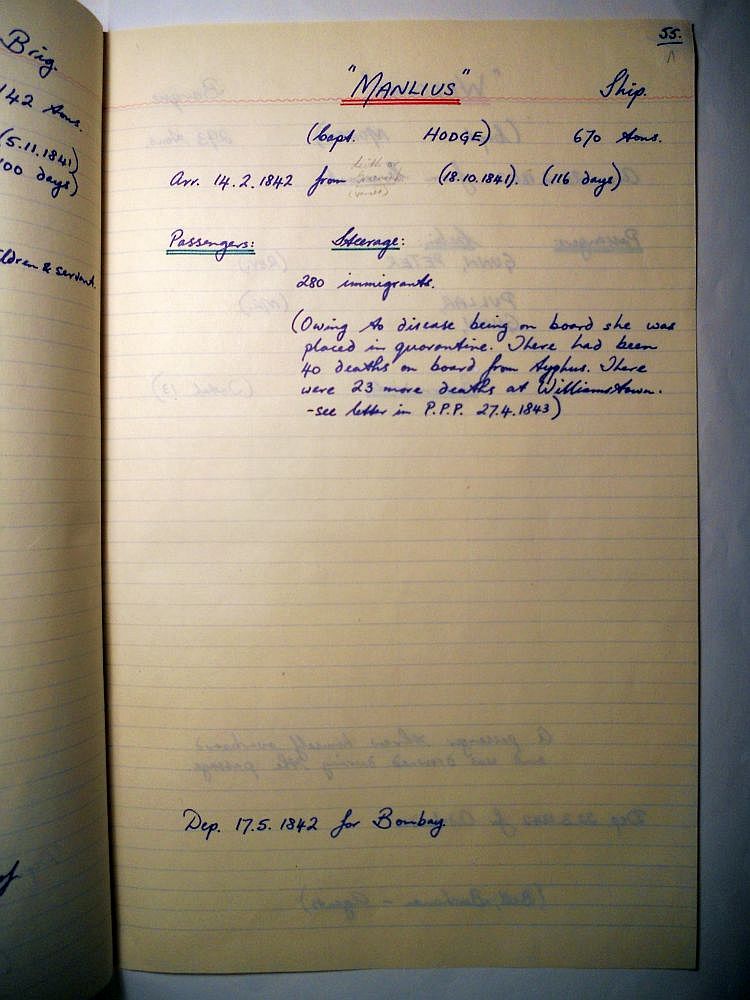 Brig.
142 tons.
(5.11.1841)
100 days)
children & servant.
55.
"MANLIUS" Ship.
(Capt. HODGE) 670 tons.
Arr. 14.2.1842 from (18.10.1841). (116 days)
Passengers: Steerage:
280 immigrants.
(Owing to disease being on board she was
placed in quarantine. There had been
40 deaths on board from typhus. There
were 23 more deaths at Williamstown.
-see letter in P.P.P. 27.4.1843)
Dep. 17.5.1842 for Bombay.